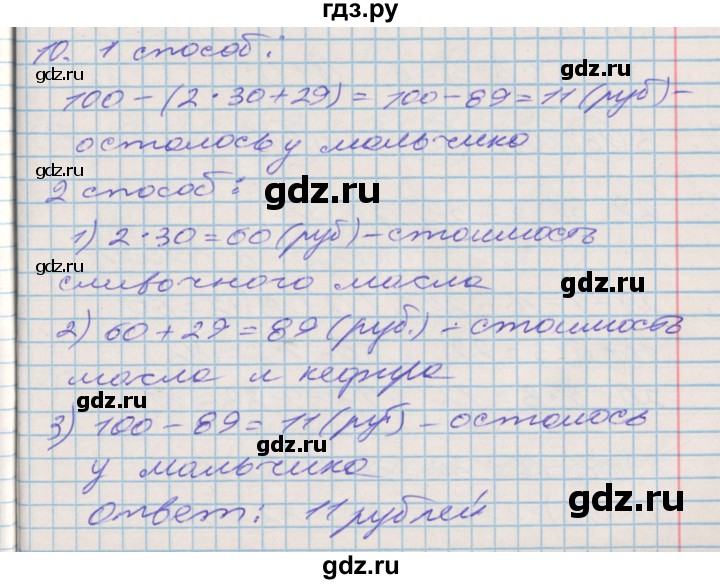 гдз.ру
10. 1 способ:
gdz.ru
100 - (2 · 30 + 29) = 100 - 89 = 11 (руб) -
осталось у мальчика
gdz.ru
2 способ:
gdz.ru
gdz.ru
1) 2 · 30 = 60 (руб) - стоимость
gdz.ru
сливочного масла
gdz.ru
2) 60 + 29 = 89 (руб.) - стоимость
масла и кефира
gdz.ru
gdz.ru
3) 100 - 89 = 11 (руб) - осталось
gdz.ru
у мальчика
gdz.ru
Ответ: 11 рублей
gdz.ru
gdz.ru